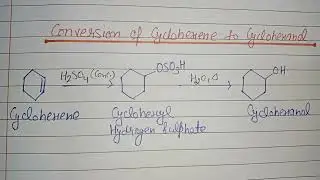 Conversion of Cyclohexene to Cyclohexanol
OSO₃H
OH
H₂SO₄(Conc.)
H₂O, Δ
Cyclohexene
Cyclohexyl
Hydrogen Sulphate
Cyclohexanol